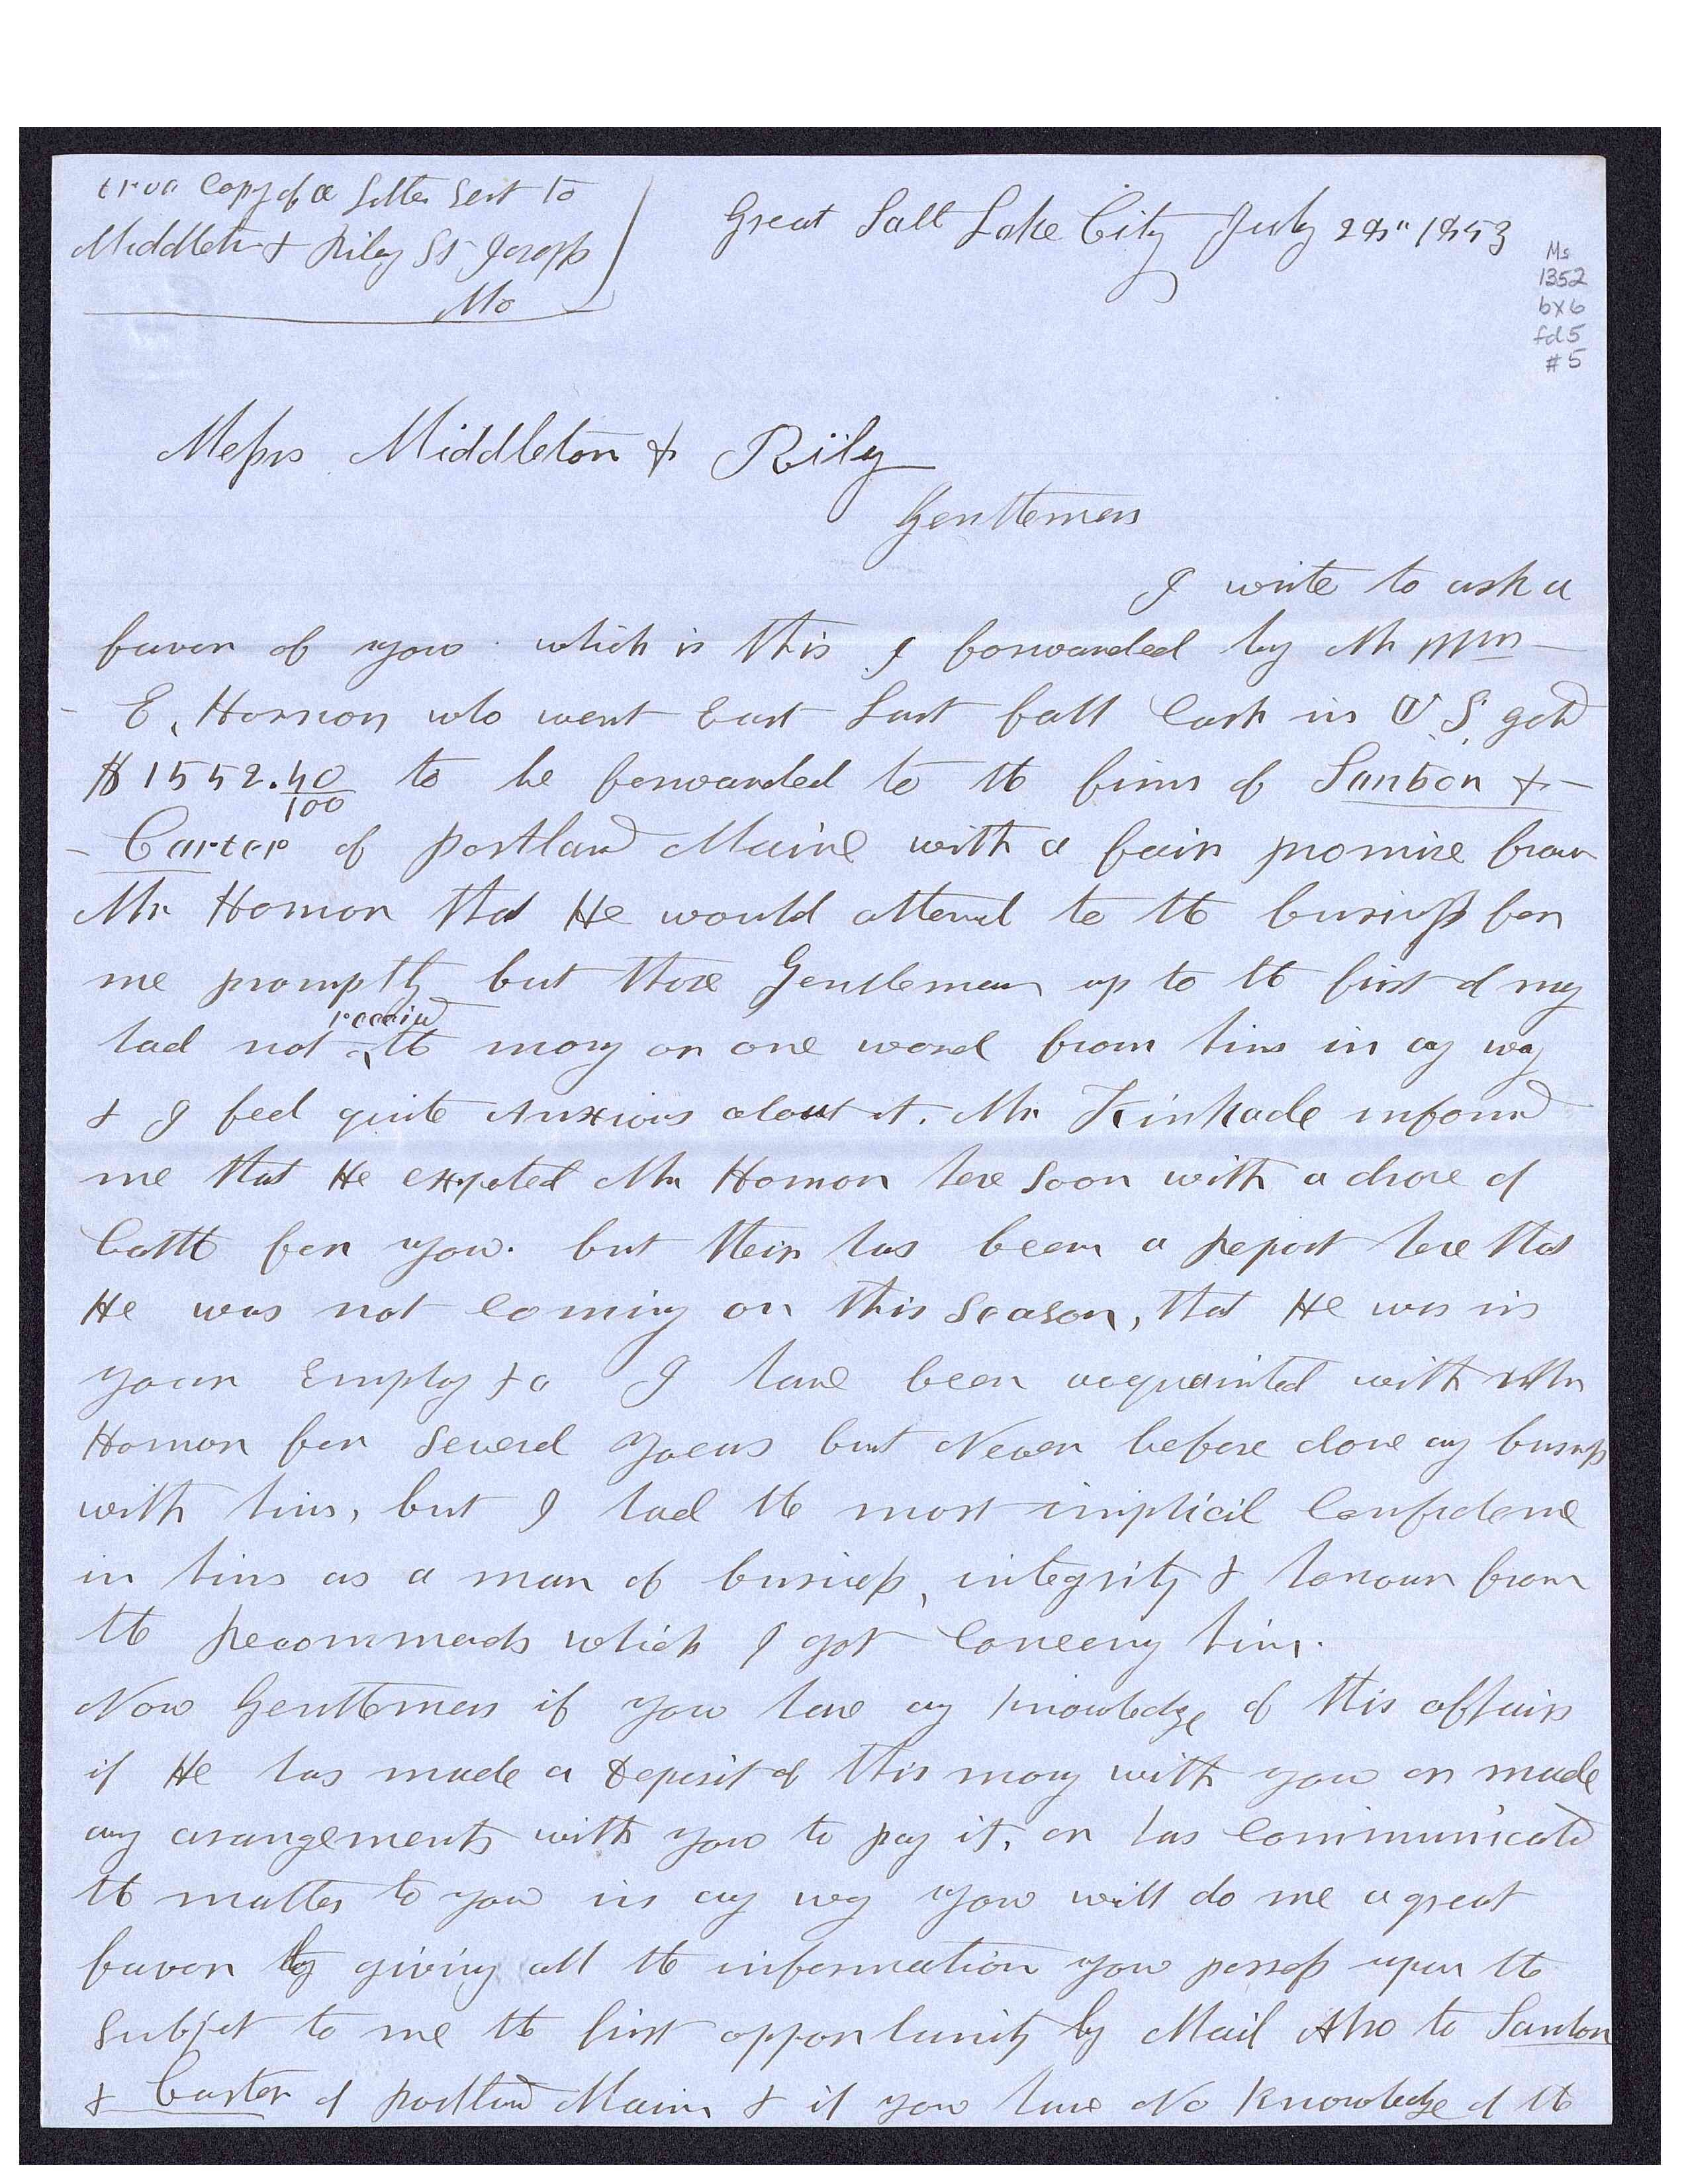 true Copy of a Letter Sent to
Middleton & Riley St Joseph
Mo
Great Salt Lake City July 28" 1853
Ms
1352
bx6
fd5
#5
Messrs Middleton & Riley
Gentlemen
I write to ask a
favor of you. which is this I forwarded by Mr Wm
E, Hornor who went East Last fall Cash in U S, gold
$1552.40/100 to be forwarded to the firm of Sanbon & -
- Carter of portland Maine with a fair promise from
Mr Hornor that He would attend to the business for
me promptly but those Gentlemen up to the first of my
had not receivd the mony or one word from him in any way
& I feel quite Anxious about it. Mr Kinkade informd
me that He expected Mr Hornor here Soon with a drove of
Cattle for you. but their has been a report here that
He was not coming on this Season, that He was in
your Employ &c I have been acquainted with Mr
Hornor for Several years but Never before done any business
with him, but I had the most implicit Confidence
in him as a man of business, integrity & honour from
the recommends which I got Concerng him.
Now Gentlemen if you have any knowledge of this affair
if He has made a Deposit of this mony with you or made
any arangements with you to pay it, or has Communicatd
the matter to you in any way you will do me a great
favor by giving all the information you possess upon the
Subject to me the first opportunity by Mail Also to Sanbon
& Carter of portland Maine & if you have No Knowledge of the